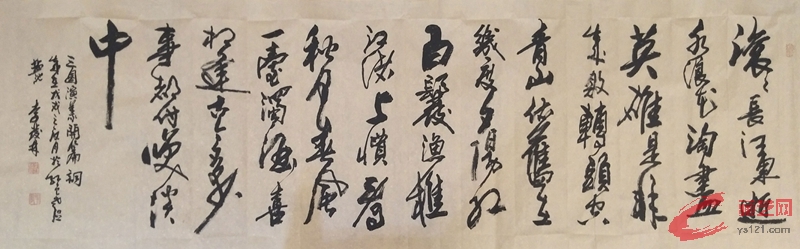 滚々長江東逝
水浪花淘盡
英雄是非
成敗轉頭空
青山依舊在
幾度夕陽红
白髮渔樵
江渚上惯看
秋月春風
一壺濁酒喜
相逢古今多少
事都付笑谈
中
三國演義開篇詞
戊戌之 月於
李
ys121.com